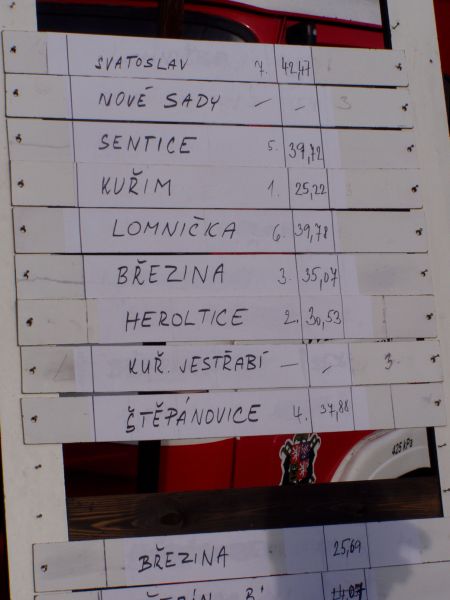 SVATOSLAV 7. 42,47
NOVÉ SADY – – 3
SENTICE 5. 39,72
KUŘIM 1. 25,22
LOMNIČKA 6. 39,78
BŘEZINA 3. 35,07
HEROLTICE 2. 30,53
KUŘ. JESTŘABÍ – – 3
ŠTĚPÁNOVICE 4. 37,88
425 kPa
BŘEZINA 25,69